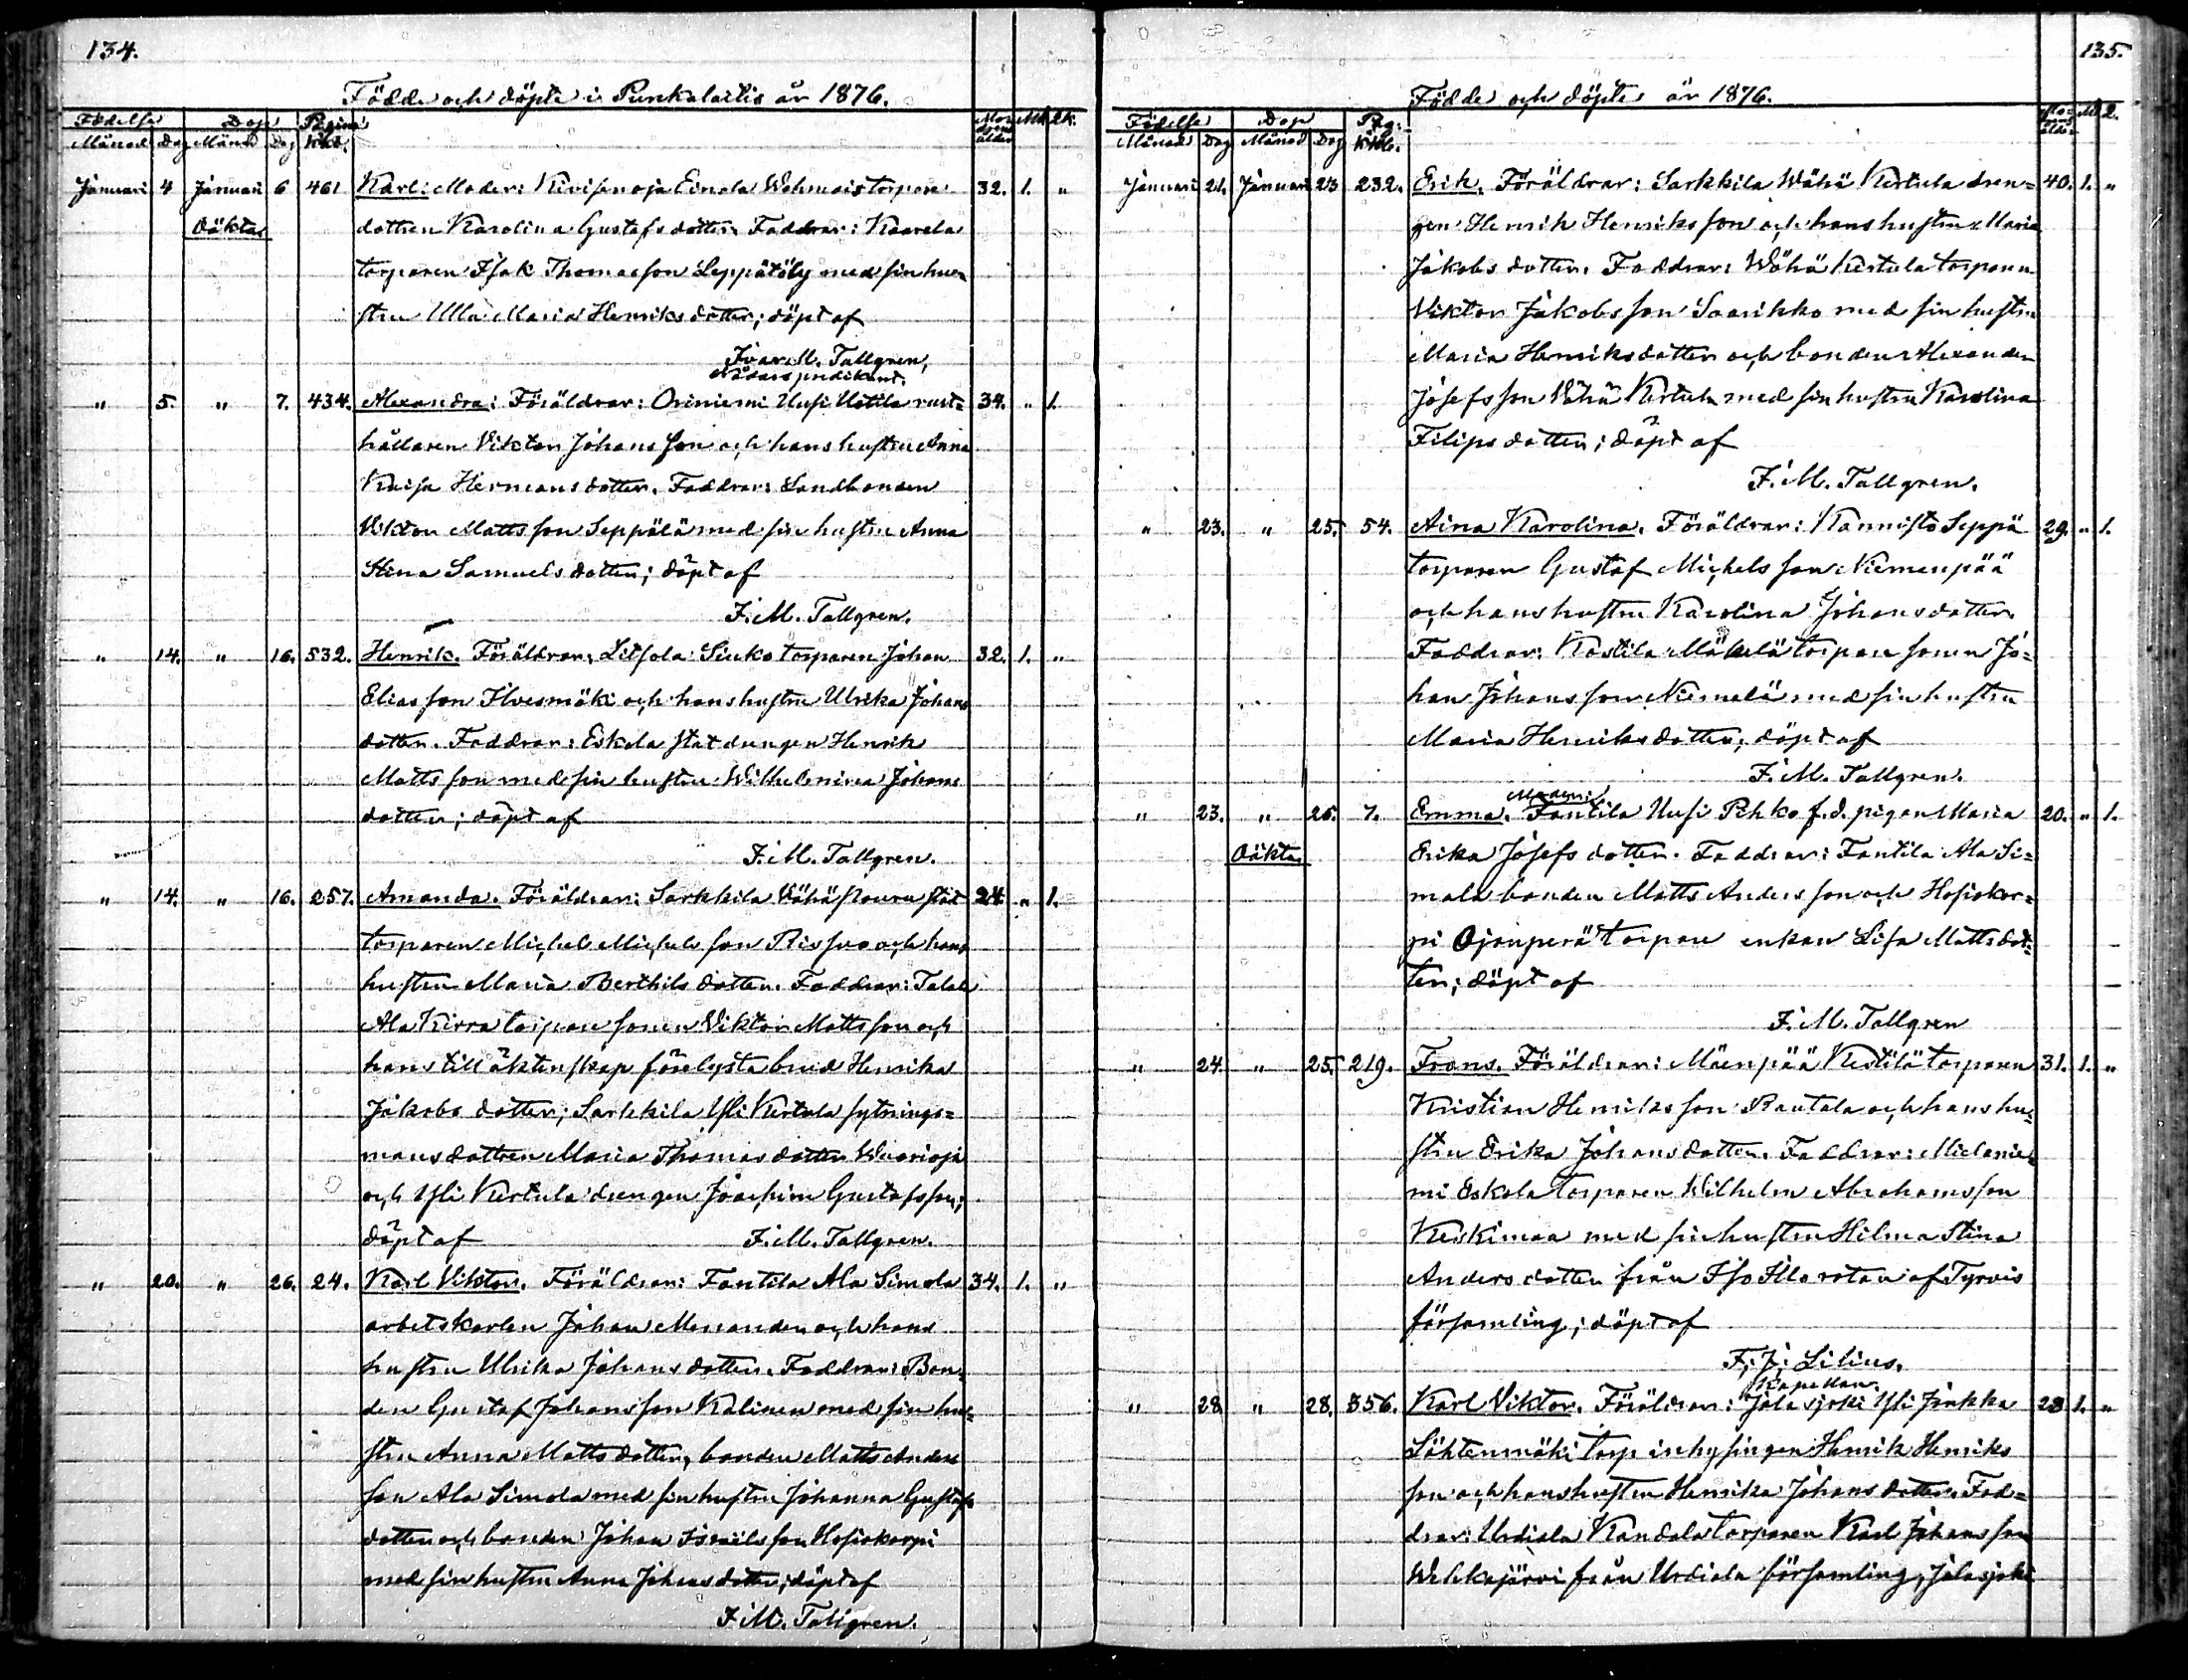 134.
Födde och döpte i Punkalaitis år 1876.
Födelse Dop Pagina Mo- Mk. Qk.
Månad Dag Månad Dag Kkb. drens ålder
Januari 4 Januari 6 461 Karl: Moder: Kivisenoja Einola Wehmais torpare 32. 1. "
Oäkta dottren Karolina Gustafsdotter. Faddrar: Kaarela
torparen Isak Thomasson Leppätöly med sin hu-
stru Ulla Maria Henriksdotter; döpt af
Ivar M. Tallgren,
Nådårspredikant.
" 5. " 7. 434. Alexandra: Föräldrar: Oriniemi Uusi Uotila rust- 34. " 1.
hållaren Viktor Johansson och hans hustru Anna
Kaisa Hermansdotter. Faddrar: Landbonden
Viktor Mattsson Seppälä med sin hustru Anna
Stina Samuelsdotter; döpt af
I. M. Tallgren.
" 14. " 16. 532. Henrik. Föräldrar: Liitsola Siuko torparen Johan 32. 1. "
Eliasson Ilvesmäki och hans hustru Ulrika Johans
dotter. Faddrar: Eskola statdrengen Henrik
Mattsson med sin hustru Wilhelmina Johans
dotter; döpt af
I. M. Tallgren.
" 14. " 16. 257. Amanda. Föräldrar: Sarkkila Vähä Nouru stat 24. " 1.
torparen Michel Michelsson Risspo och hans
hustru Maria Berthilsdotter. Faddrar: Talala
Ala Kirra torpare sonen Viktor Mattsson och
hans till äktenskap förelysta brud Henrika
Jakobsdotter; Sarkkila Yli Kertula sytnings-
mansdottren Maria Thomasdotter Wuorioja
och Yli Kertula drengen Joachim Gustafsson;
döpt af I. M. Tallgren.
" 20. " 26. 24. Karl Viktor. Föräldrar: Fantila Ala Simola 34. 1. "
arbetskarlen Johan Menander och hans
hustru Ulrika Johansdotter. Faddrar: Bon-
den Gustaf Johansson Kalinen med sin hu-
stru Anna Mattsdotter, bonden Matts Anders
son Ala Simola med sin hustru Johanna Gustafs
dotter och bonden Johan Israelsson Hosiokorpi
med sin hustru Anna Johansdotter; döpt af
I. M. Tallgren.
135.
Födde och döpte år 1876.
Födelse Dop Pag. Mo- M. Q.
Månad Dag Månad Dag Kkb. drens ålder
Januari 21. Januari 23 232. Erik. Föräldrar: Sarkkila Wähä Kertula dren- 40. 1. "
gen Henrik Henriksson och hans hustru Maria
Jakobsdotter. Faddrar: Wähä Kertula torparen
Viktor Jakobsson Saarikko med sin hustru
Maria Henriksdotter och bonden Alexander
Josefsson Vähä Kertula med sin hustru Karolina
Filipsdotter; döpt af
I. M. Tallgren.
" 23. " 25. 54. Aina Karolina. Föräldrar: Kannisto Seppä 29. " 1.
torparen Gustaf Michelsson Niemenpää
och hans hustru Karolina Johansdotter.
Faddrar: Kostila Mäkelä torpare sonen Jo-
han Johansson Niemelä med sin hustru
Maria Henriksdotter; döpt af
I. M. Tallgren.
" 23. " 26. 7. Emma. Modern: Fantila Uusi Pihko f.d. pigan Maria 20. " 1.
Oäkta Erika Josefsdotter. Faddrar: Fantila Ala Si-
mola bonden Matts Andersson och Hosiokor-
pi Ojanperä torpare enkan Lisa Mattsdot-
ter; döpt af
I. M. Tallgren
" 24. " 25. 219. Frans. Föräldrar: Mäenpää Kertilä torparen 31. 1. "
Kristian Henriksson Rautala och hans hu-
stru Erika Johansdotter. Faddrar: Mielanie-
mi Eskola torparen Wilhelm Abrahamsson
Keskimaa med sin hustru Hilma Stina
Andersdotter från Iso Illo rotan af Tyrvis
församling; döpt af
F. J. Lilius,
Kapellan.
" 28 " 28. 356. Karl Viktor. Föräldrar: Jalasjoki Yli Jaakka 23 1. "
Löhtenmäki torp inhysingen Henrik Henriks
son och hans hustru Henrika Johansdotter. Fad-
drar: Urdiala Kandola torparen Karl Johansson
Wehkajärvi från Urdiala församling, Jalasjoki